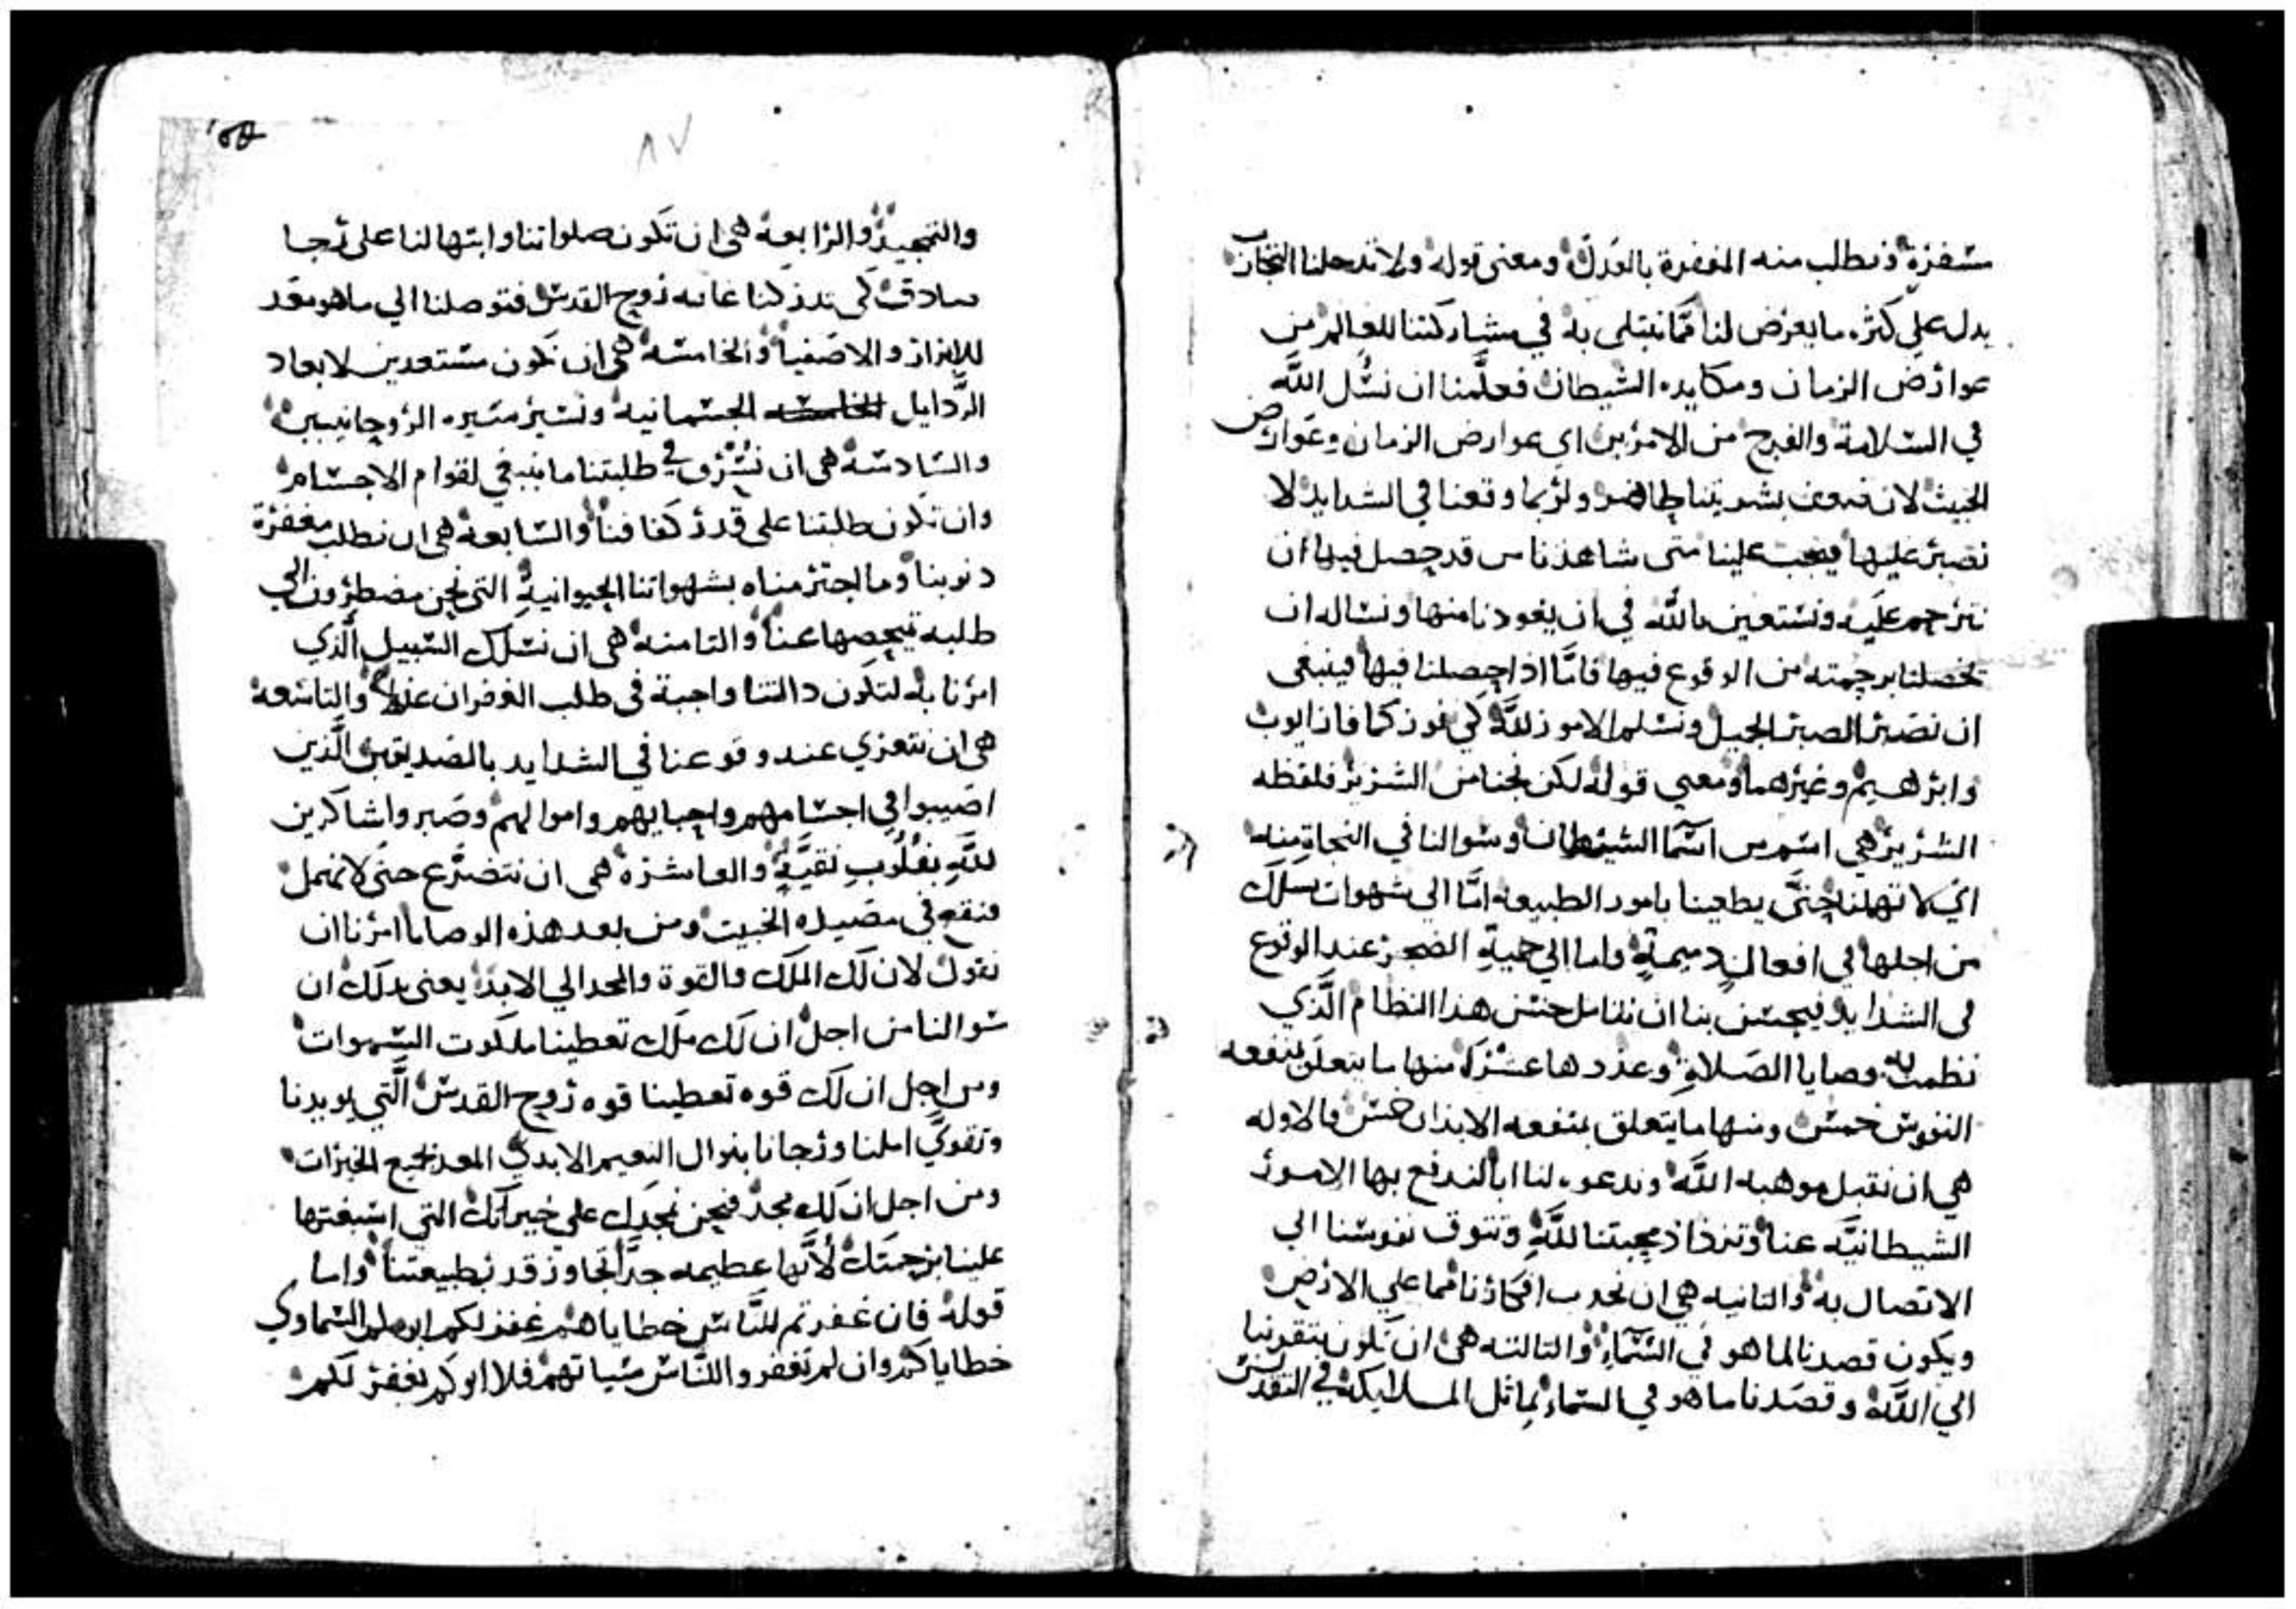 مستمرة ونطلب منه المغفرة بالعدل ومعنى قوله ولا تدخلنا التجارب
يدل علي كثره ما يعرض لنا مما نبتلى به في مشاركتنا للعالم من
عوارض الزمان ومكايده الشيطان فعلَّمنا ان نسُل اللَّه
في السلامة والفرج من الامرين اي عوارض الزمان وعوارض
الخبيث لان ضعف بشريتنا ظاهر ولربما وقعنا في الشدايد لا
نصبر عليها فيجب علينا متى شاهدنا من قد حصل فيها ان
نترحم عليه ونستعين بالله في ان يعودنا منها ونساله ان
يخصلنا برحمته من الوقوع فيها فامَّا اذا حصلنا فيها فينبغى
ان نصبر الصبر الجميل ونسلم الامور للَّه كي نفوز كما فاز ايوب
وابرهيم وغيرهما ومعني قوله لكن نجنا من الشرير فلفظه
الشرير هي اسم من اسما الشيطان وسوالنا في النجاة منه
اي لا تهملنا حتَّى يطغينا بامور الطبيعه امَّا الى شهوات نسلك
من اجلها في افعال دميمةٍ واما الي حمية الضجر عند الوقوع
في الشدايد فيحسن بنا ان نتامل حسن هذا النظام الَّذي
نظمت به وصايا الصلاةِ وعددها عشرة منها ما يتعلق بمنفعه
النفوس خمس ومنها ما يتعلق بمنفعه الابدان خمس فالاوله
هي ان نقبل موهبه اللَّه وندعوه لنا ابا لندفع بها الامور
الشيطانيَّه عنا وتزداد محبتنا للَّه وتتوق نفوسنا الي
الاتصال به والتانيه هي ان نجدب افكارنا مما علي الارض
ويكون قصدنا لما هو في السَّماء والتالته هى ان تكون بتقربنا
الي اللَّه وقصدنا ما هو في السماء نماتل الملايكه في التقديس
والتمجيد والرابعه هى ان تكون صلواتنا وابتهالنا على رجا
صادق كى تدركنا غايه روح القدس فتوصلنا الي ما هو معد
للابرار والاصفيا والخامسه هى ان نكون مستعدين لابعاد
الرَّدايل الجسمانيه ونسير مسيره الروحانيين
والسادسه هى ان نسُرق في طلبتنا ما ينبغي لقوام الاجسام
وان تكون طلبتنا على قدر كفافنا والسابعه هى ان نطلب مغفرة
دنوبنا وما اجترمناه بشهواتنا الحيوانية التى نحن مضطرون الي
طلبه تمحصها عنا والتامنه هى ان نسلك السبيل الَّذي
امرنا به لتكون دالتنا واجبة فى طلب الغفران عدلا والتاسعه
هى ان نتعزي عند وقوعنا في الشدايد بالصديقين الَّذين
اصيبوا في اجسامهم واحبايهم واموالهم وصبروا شاكرين
للَّهِ بقلُوبٍ نقيَّةٍ والعاشرة هى ان نتضرَّع حتى لا نهمل
فنقع في مصيده الخبيت ومن بعد هذه الوصايا امرنا ان
نقول لان لك الملك والقوة والمجد الي الابد يعنى بدلك ان
سوالنا من اجل ان لك ملك تعطينا ملكوت السموات
ومن اجل ان لك قوه تعطينا قوه روح القدس الَّتي يويدنا
وتقوي املنا ورجانا بنوال النعيم الابدي المعد لجميع الخيرات
ومن اجل ان لك مجد فنحن نمجدك على خيراتك التي اسبغتها
علينا برحمتك لأنَّها عظيمه جدَّا تجاوز قدر طبيعتنا واما
قوله فان غفرتم للنَّاس خطاياهم غفر لكم ابوكم السماوي
خطاياكم وان لم تغفروا للنَّاس سياتهم فلا ابوكم يغفر لكم